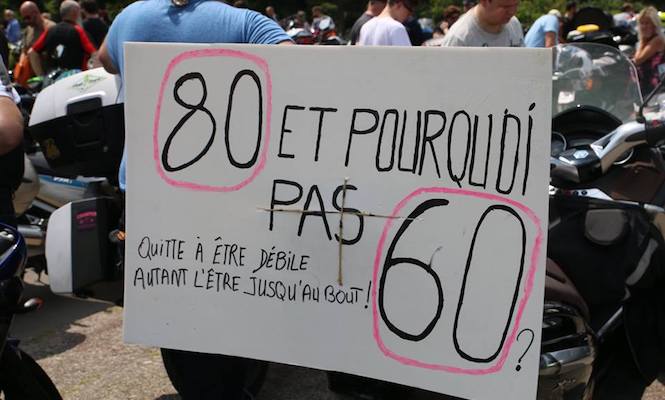 80 ET POURQUOI
PAS 60 ?
QUITTE À ÊTRE DÉBILE
AUTANT L'ÊTRE JUSQU'AU BOUT !